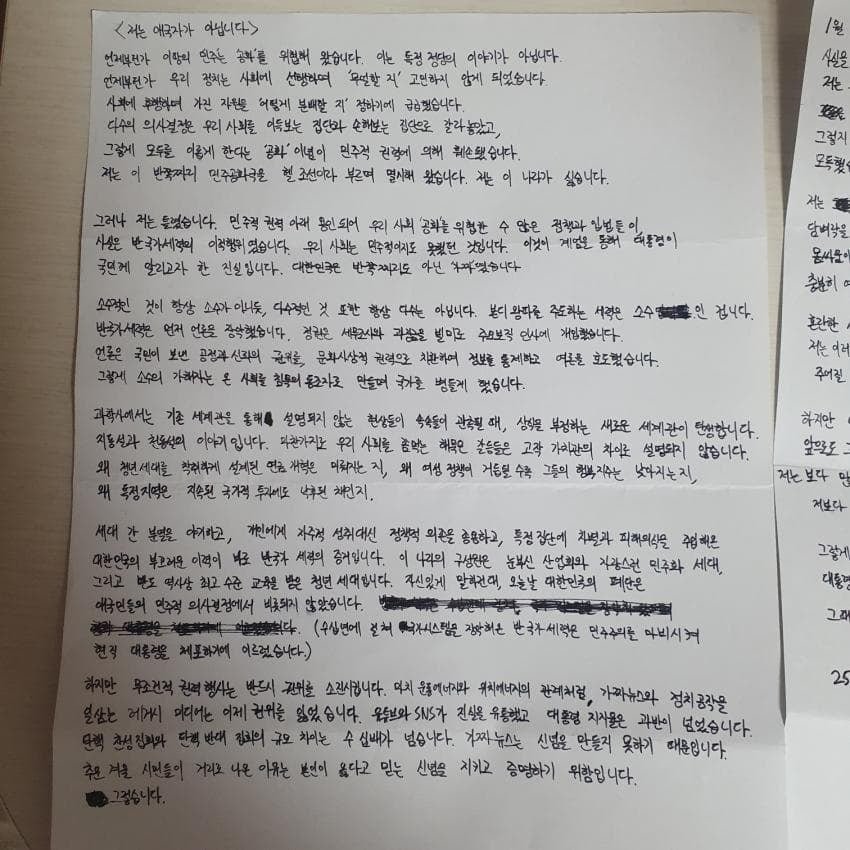 <저는 애국자가 아닙니다>
언제부턴가 이항의 민주는 '공화'를 위협해 왔습니다. 이는 특정 정당의 이야기가 아닙니다.
언제부턴가 우리 정치는 사회에 선행하며 '무얼할 지' 고민하지 않게 되었습니다.
사회에 후행하며 가진 자원을 '어떻게 분배할 지' 정하기에 급급했습니다.
다수의 의사결정은 우리 사회를 이득보는 집단과 손해보는 집단으로 갈라놓았고,
그렇게 모두를 이롭게 한다는 '공화' 이념이 민주적 권력에 의해 훼손됐습니다.
저는 이 반쪽짜리 민주공화국을 헬조선이라 부르며 멸시해 왔습니다. 저는 이 나라가 싫습니다.
그러나 저는 들었습니다. 민주적 권력 아래 용인되어 우리 사회 '공화'를 위협한 수 많은 정책과 입법들이,
사실은 반국가세력의 이적행위였습니다. 우리 사회는 민주적이지도 못했던 것입니다. 이것이 계엄을 통해 대통령이
국민께 알리고자 한 진실입니다. 대한민국은 반쪽짜리도 아닌 '가짜'였습니다
소수적인 것이 항상 소수가 아니듯, 다수적인 것 또한 항상 다수는 아닙니다. 본디 왕따를 주도하는 세력은 소수인 겁니다.
반국가세력은 먼저 언론을 장악했습니다. 정권은 세무조사와 과징금을 빌미로 주요보직 인사에 개입했습니다.
언론은 국민이 보낸 공정과 신뢰의 권위를, 문화사상적 권력으로 치환하여 정보를 통제하고 여론을 호도했습니다.
그렇게 소수의 가해자는 온 사회를 침묵의 동조자로 만들며 국가를 병들게 했습니다.
과학사에서는 기존 세계관을 통해 설명되지 않는 현상들이 속속들이 관측될 때, 상식을 부정하는 새로운 세계관이 탄생합니다.
지동설과 천동설의 이야기입니다. 마찬가지로 우리 사회를 좀먹는 해묵은 갈등들은 고작 가치관의 차이로 설명되지 않습니다.
왜 청년세대를 착취하게 설계된 연금 개혁은 미뤄지는 지, 왜 여성 정책이 거듭될 수록 그들의 행복지수는 낮아지는지,
왜 특정지역은 지속된 국가적 투자에도 낙후된 채인지.
세대 간 분열을 야기하고, 개인에게 자주적 성취대신 정책적 의존을 종용하고, 특정 집단에 차별과 피해의식을 주입해온
대한민국의 부끄러운 이력이 바로 반국가 세력의 증거입니다. 이 나라의 구성원은 눈부신 산업화와 자랑스런 민주화 세대,
그리고 반도 역사상 최고 수준 교육을 받은 청년 세대입니다. 자신있게 말하건대, 오늘날 대한민국의 폐단은
애국민들의 민주적 의사결정에서 비롯되지 않았습니다.
(수십년에 걸쳐 국가시스템을 장악해온 반국가세력은 민주주의를 마비시켜
현직 대통령을 체포하기에 이르렀습니다.)
하지만 무조건적 권력행사는 반드시 권위를 소진시킵니다. 마치 운동에너지와 위치에너지의 관계처럼, 가짜뉴스와 정치공작을
일삼는 레거시 미디어는 이제 권위를 잃었습니다. 유튜브와 SNS가 진실을 유통했고 대통령 지지율은 과반이 넘었습니다.
탄핵 찬성집회와 탄핵 반대 집회의 규모 차이는 수 십배가 넘습니다. 가짜뉴스는 신념을 만들지 못하기 때문입니다.
추운 겨울 시민들이 거리로 나온 이유는 본인이 옳다고 믿는 신념을 지키고 증명하기 위함입니다.
그렇습니다.
1월
사실을
저는
그렇지
모독했습
저는
담벼락을
몸싸움이
충분히 여
혼란한
저는 이러
주어질
하지만
앞으로 그
저는 보다 많
저보다
그렇게
대통령
그때
25